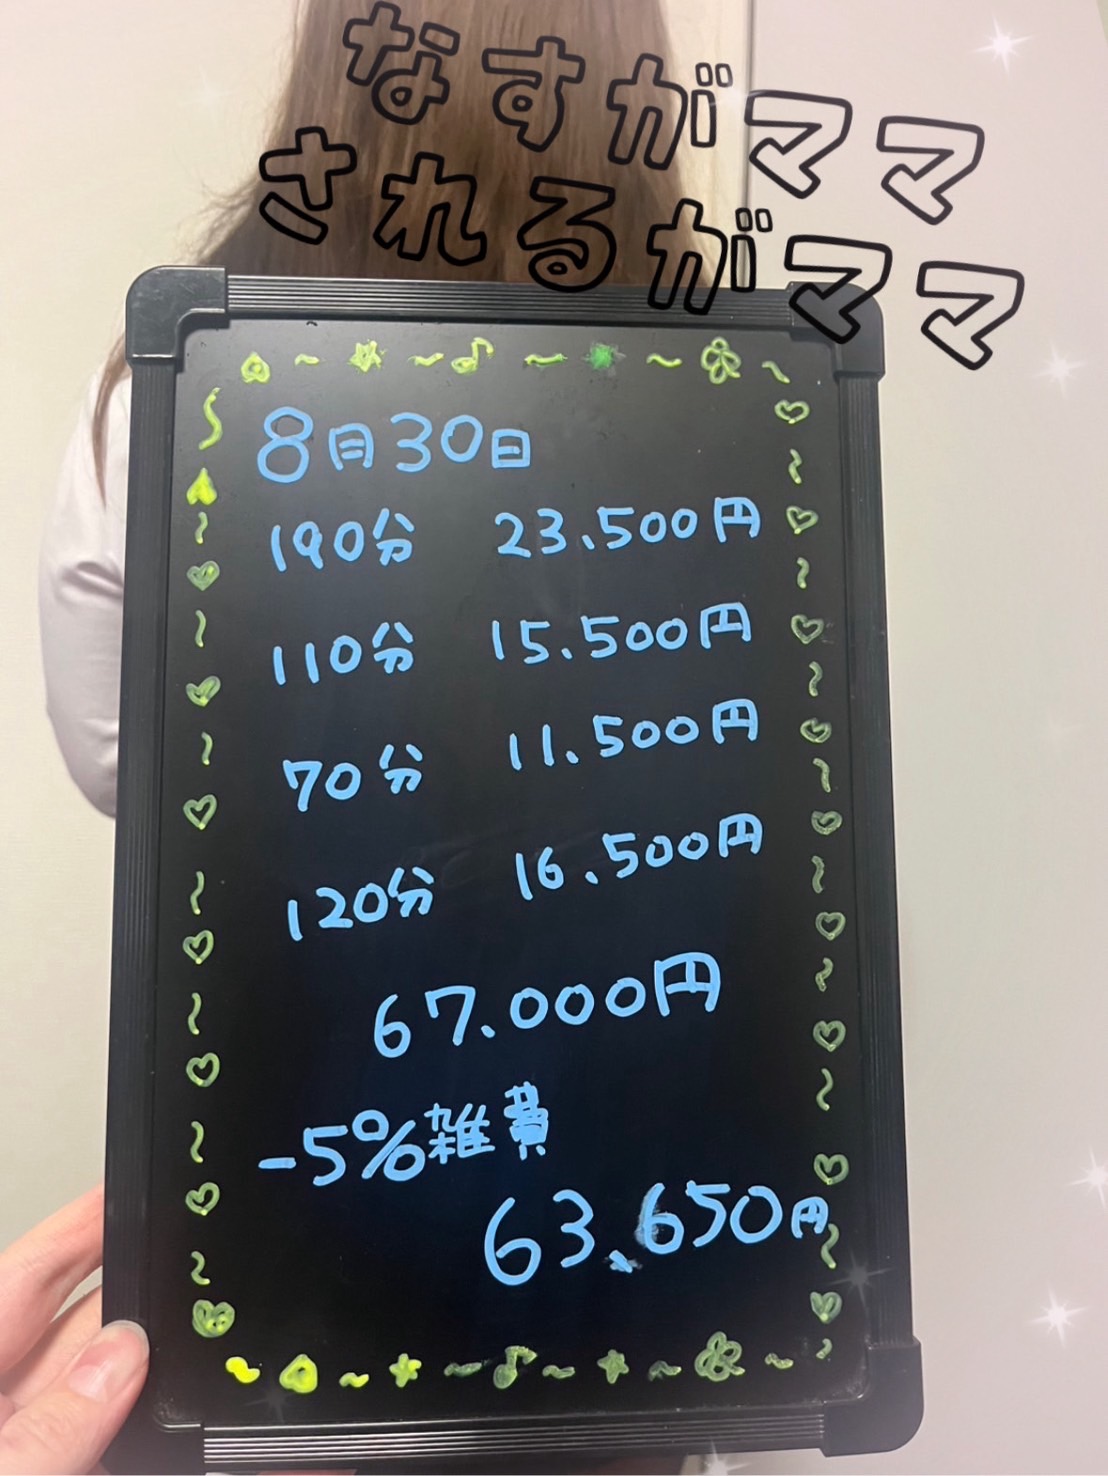 なすがママ
されるがママ
8月30日
190分 23.500円
110分 15.500円
70分 11.500円
120分 16.500円
67.000円
-5%雑費
63.650円